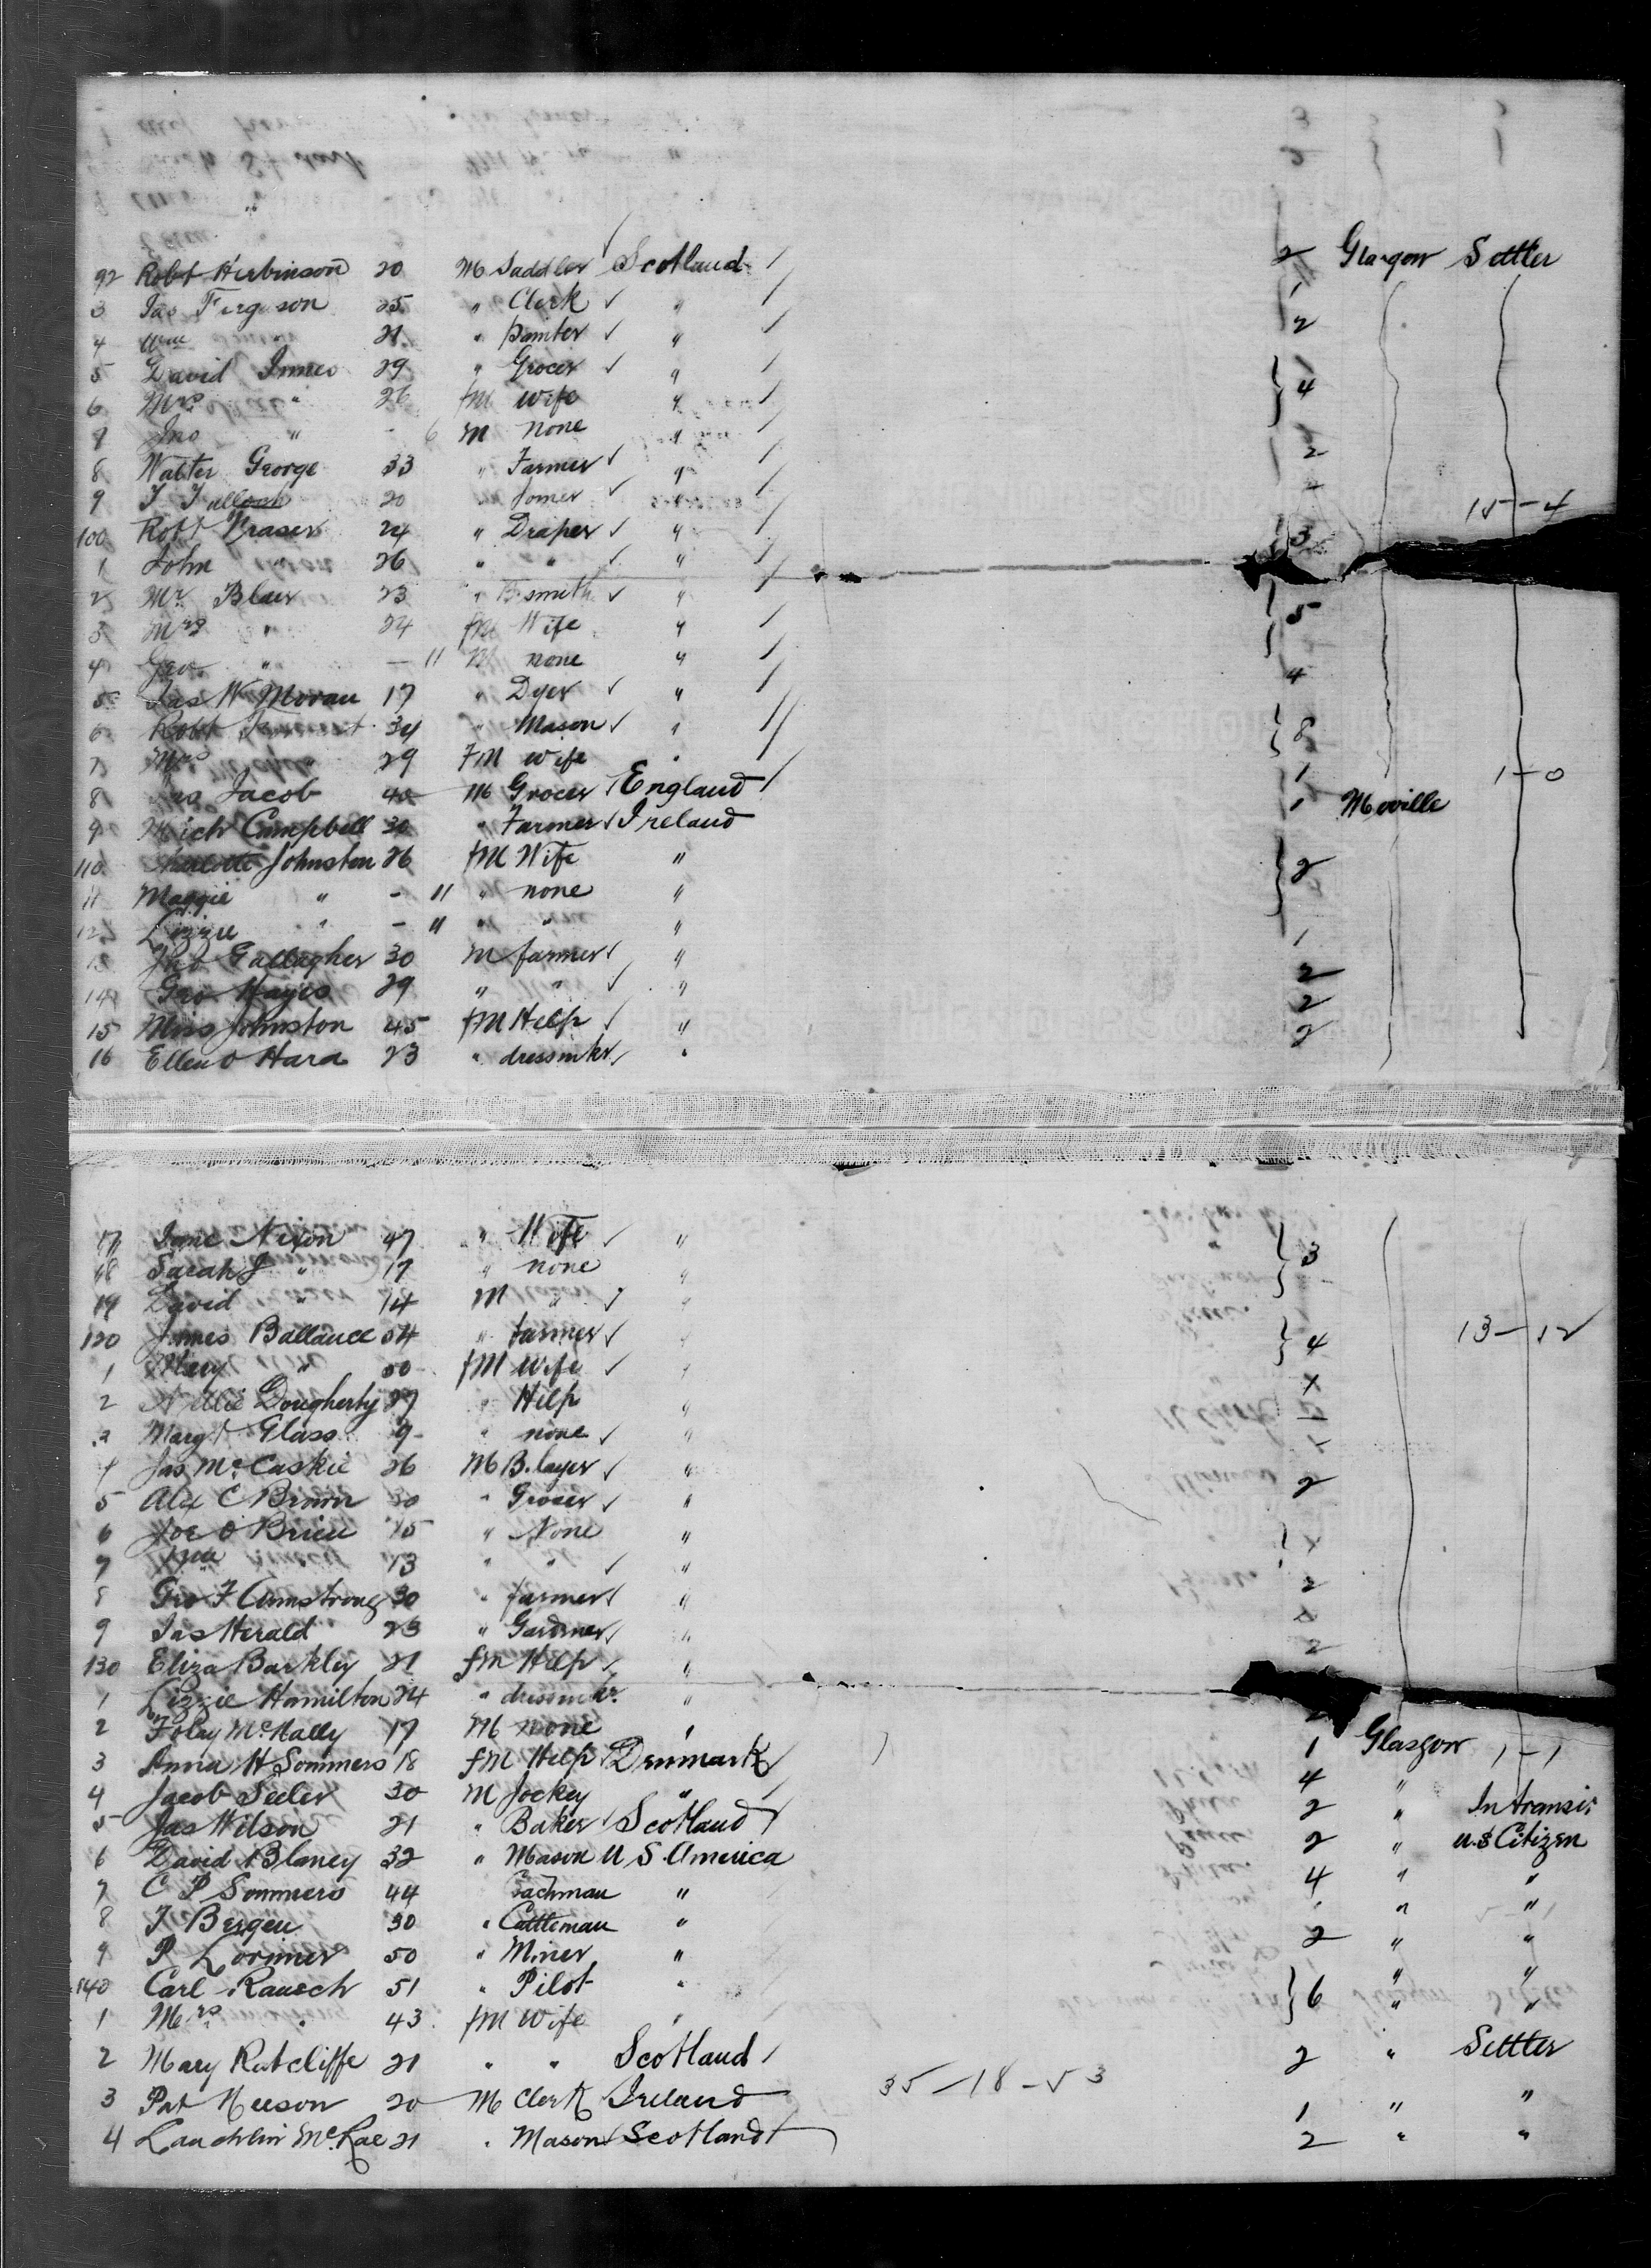 92 Robt Herbinson 20 M Saddler Scotland 2 Glasgow Settler
3 Jas Ferguson 25 " Clerk " 1
4 Wm 21 " Painter " 2
5 David Innes 29 " Grocer "
6 Mrs " 26 fM wife " 4
7 Jno " - 6 M none "
8 Walter George 33 " Farmer " 2
9 J 20 " Joiner "
15-4
100 Robt Fraser 24 " Draper " 3
1 John 26 " " "
2 Mr Blair 23 " smith "
3 Mrs " 24 fM Wife " 5
4 Geo " - 11 M none "
5 Jas W Moran 17 " Dyer " 4
6 Robt 34 " Mason " 8
7 Mrs 29 FM wife "
8 Jacob 40 M Grocer England 1 1-0
9 Mich Campbell 30 " Farmer Ireland 1 Moville
110 Charlotte Johnston 26 fM Wife " 2
11 Maggie " - 11 " none "
12 Lizzie " - 11 " "
13 Gallagher 30 M farmer " 1
14 Geo Hayes 29 " " " 2
15 Miss Johnston 45 fM Help " 2
16 Ellen O Hara 23 " dressmkr " 2
17 Jane Nixon 47 " Wife "
18 Sarah J " 17 " none " 3
19 David " 14 M " "
120 James Ballance 54 " farmer " 13-12
1 Mary " 50 fM wife " 4
2 Nellie Dougherty 27 " Help "
3 Margt Glass 9 " none "
4 Jas McCaskie 26 M B.layer "
5 Alex C Brown 30 " Grocer " 2
6 Joe O Brien 15 " None "
7 Wm " 13 " " "
8 Geo F Armstrong 30 " farmer " 2
9 Jas Herald 23 " Gardner "
130 Eliza Barkley 21 fM Help " 2
1 Lizzie Hamilton 24 " dressmkr "
2 Foley McNally 17 M none "
3 Anna H Sommers 18 fM Help Denmark 1 Glasgow 1-1
4 Jacob Seeler 30 M Jockey " 4 "
5 Jas Wilson 21 " Baker Scotland 2 " In transit
6 David Blaney 32 " Mason U S America 2 " U.S Citizen
7 C P Sommers 44 Cachman " 4 " "
8 J Bergen 30 " Cattleman " " "
9 P Lorimer 50 " Miner " 2 " "
140 Carl Rausch 51 " Pilot " " "
1 Mrs " 43 fM Wife " 6 " "
2 Mary Ratcliffe 21 " " Scotland 2 " Settler
35-18-53
3 Pat Neeson 20 M Clerk Ireland 1 " "
4 Lauchlin McRae 21 " Mason Scotland 2 " "